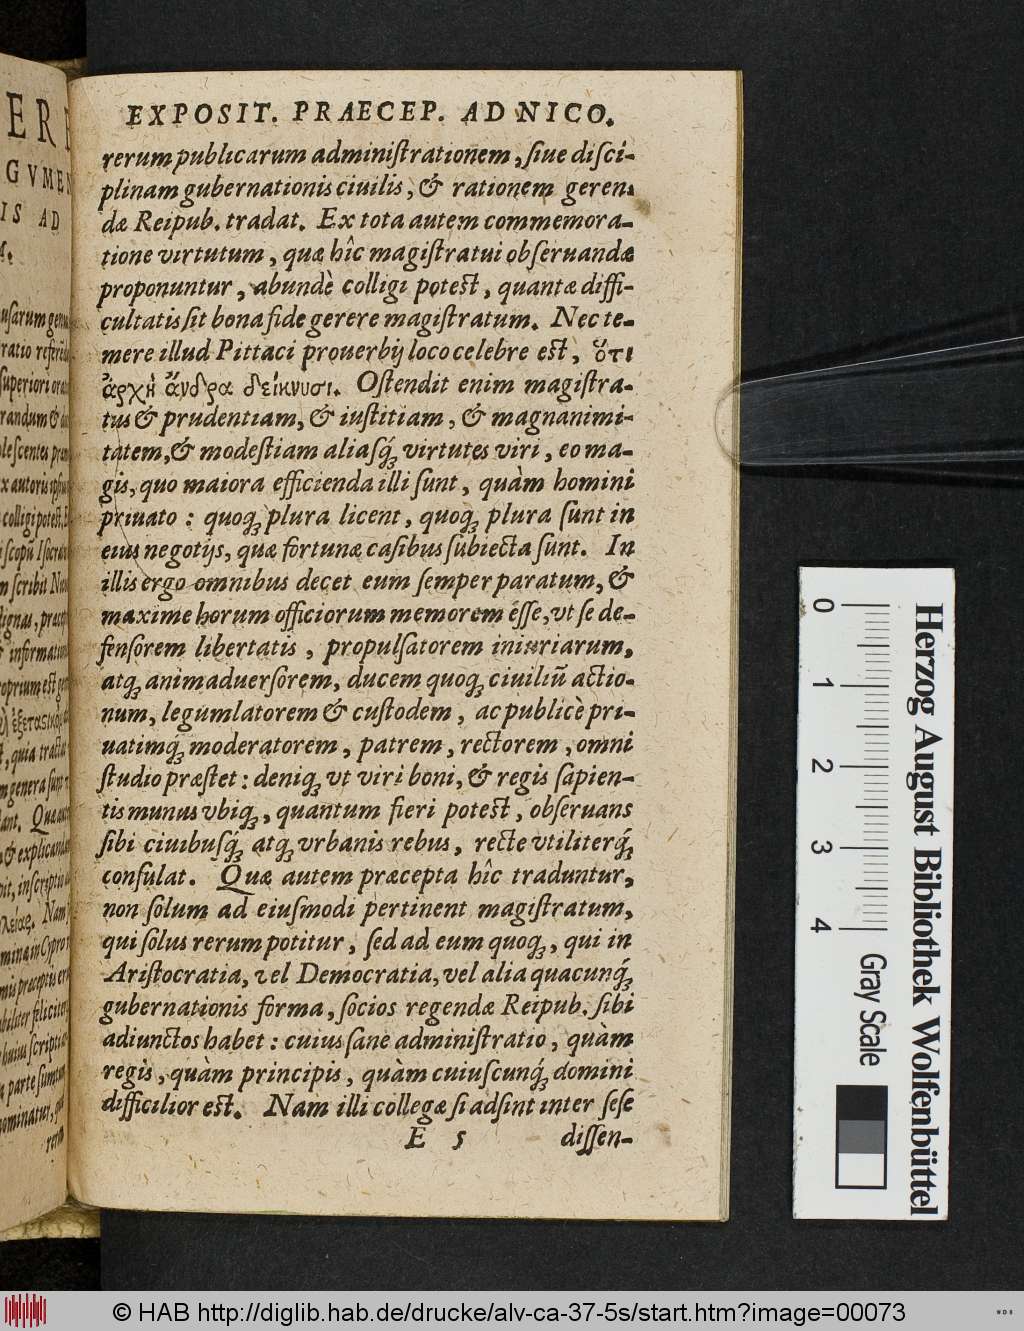 EXPOSIT. PRAECEP. AD NICO.
rerum publicarum adminiſtrationem, ſiue diſci-
plinam gubernationis ciuilis, & rationem geren-
dæ Reipub. tradat. Ex tota autem commemora-
tione virtutum, quæ hîc magiſtratui obſeruandæ
proponuntur, abundè colligi poteſt, quantæ diffi-
cultatis ſit bona fide gerere magiſtratum. Nec te-
mere illud Pittaci prouerbij loco celebre eſt, ὅτι
ἀρχὴ ἄνδρα δείκνυσι. Oſtendit enim magiſtra-
tus & prudentiam, & iuſtitiam, & magnanimi-
tatem, & modeſtiam aliaſq́; virtutes viri, eo ma-
gis, quo maiora efficienda illi ſunt, quàm homini
priuato : quoq; plura licent, quoq; plura ſunt in
eius negotijs, quæ fortunæ caſibus ſubiecta ſunt. In
illis ergo omnibus decet eum ſemper paratum, &
maxime horum officiorum memorem eſſe, vt ſe de-
fenſorem libertatis, propulſatorem iniuriarum,
atq; animaduerſorem, ducem quoq; ciuiliũ actio-
num, legumlatorem & cuſtodem, ac publicè pri-
uatimq́; moderatorem, patrem, rectorem, omni
ſtudio præſtet : deniq; vt viri boni, & regis ſapien-
tis munus vbiq;, quantum fieri poteſt, obſeruans
ſibi ciuibuſq́; atq; vrbanis rebus, recte vtiliterq́;
conſulat. Quæ autem præcepta hîc traduntur,
non ſolum ad eiuſmodi pertinent magiſtratum,
qui ſolus rerum potitur, ſed ad eum quoq;, qui in
Ariſtocratia, vel Democratia, vel alia quacunq́;
gubernationis forma, ſocios regendæ Reipub. ſibi
adiunctos habet : cuius ſane adminiſtratio, quàm
regis, quàm principis, quàm cuiuſcunq́; domini
difficilior eſt. Nam illi collegæ ſi adſint inter ſeſe
E 5 diſſen-
0 1 2 3 4
Gray Scale
Herzog August Bibliothek Wolfenbüttel
© HAB http://diglib.hab.de/drucke/alv-ca-37-5s/start.htm?image=00073